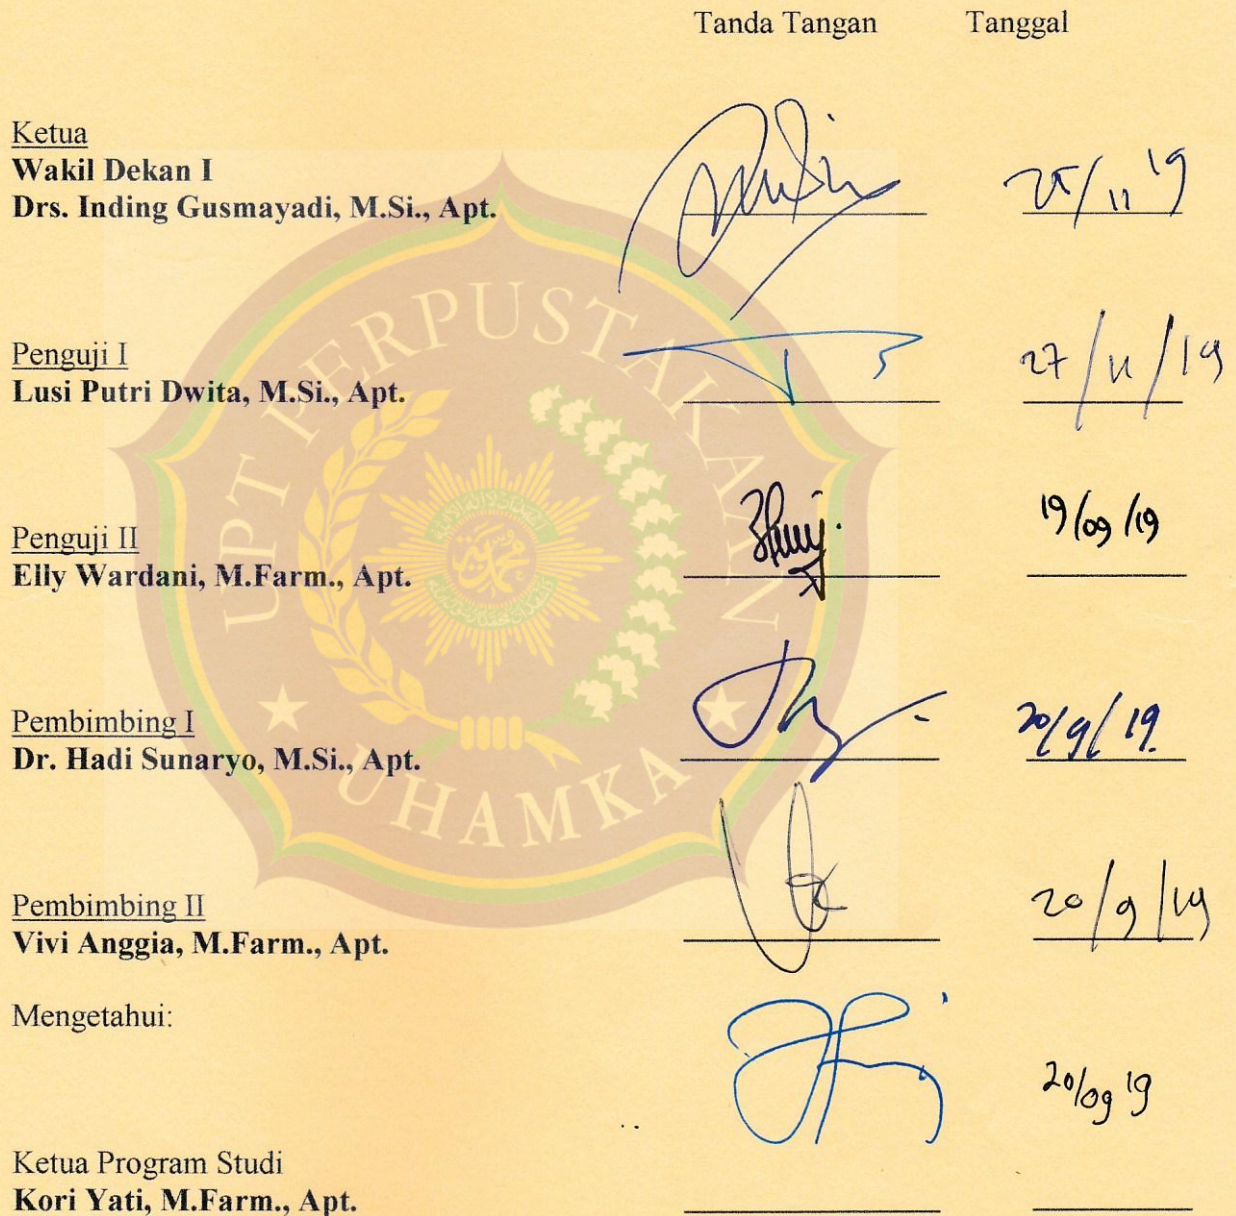 Tanda Tangan Tanggal
Ketua
Wakil Dekan I
Drs. Inding Gusmayadi, M.Si., Apt. 25/11 19
Penguji I
Lusi Putri Dwita, M.Si., Apt. 27/11/19
Penguji II
Elly Wardani, M.Farm., Apt. 19/09/19
Pembimbing I
Dr. Hadi Sunaryo, M.Si., Apt. 20/9/19.
Pembimbing II
Vivi Anggia, M.Farm., Apt. 20/9/19
Mengetahui:
20/09 19
Ketua Program Studi
Kori Yati, M.Farm., Apt.
UPT PERPUSTAKAAN
UHAMKA